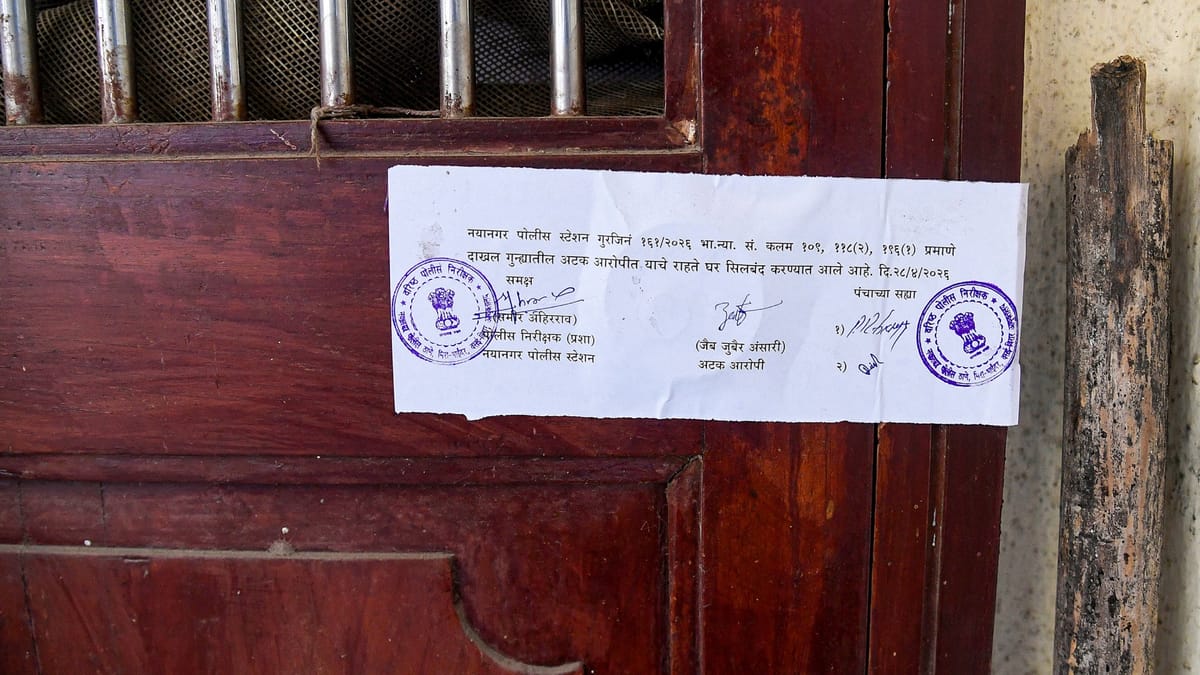 नयानगर पोलीस स्टेशन गुरजिनं १६१/२०२६ भा.न्या. सं. कलम १०९, ११८(२), १९६(१) प्रमाणे
दाखल गुन्ह्यातील अटक आरोपीत याचे राहते घर सिलबंद करण्यात आले आहे. दि.२८/४/२०२६
समक्ष
पंचाच्या सह्या
(समीर अहिरराव)
पोलीस निरीक्षक (प्रशा)
नयानगर पोलीस स्टेशन
(जैब जुबैर अंसारी)
अटक आरोपी
१)
२)
वरिष्ठ पोलीस निरीक्षक
वरिष्ठ पोलीस निरीक्षक